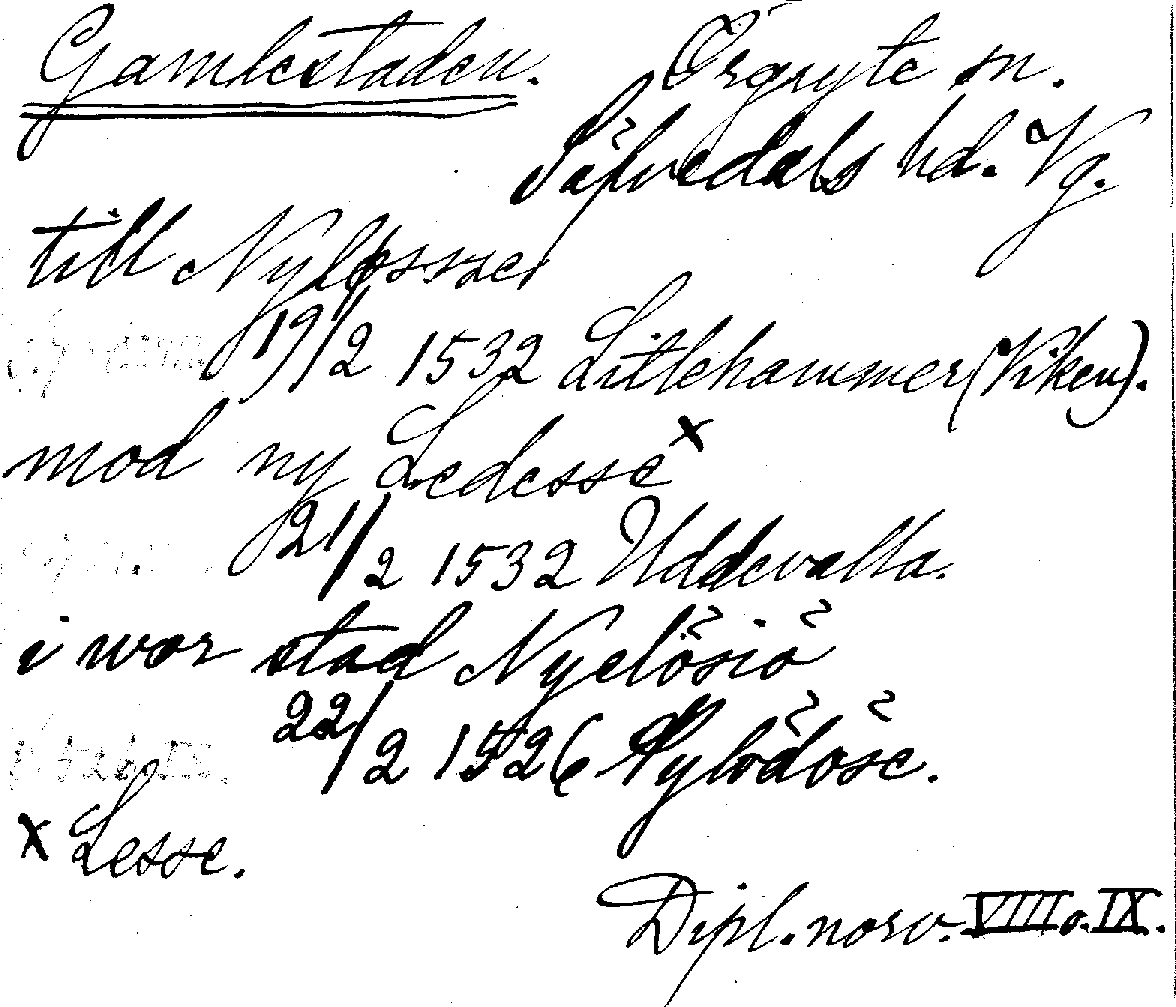 Gamlestaden. Örgryte sn.
Säfvedals hd. Vg.
till Nyløsse
19/2 1532 Litlehammer (Viken).
mod ny Ledesse x
21/2 1532 Uddevalla.
i wor stad Nyelösiö
22/2 1526 Nylödöse.
x Lesse.
Dipl. norv. VIII o. IX.